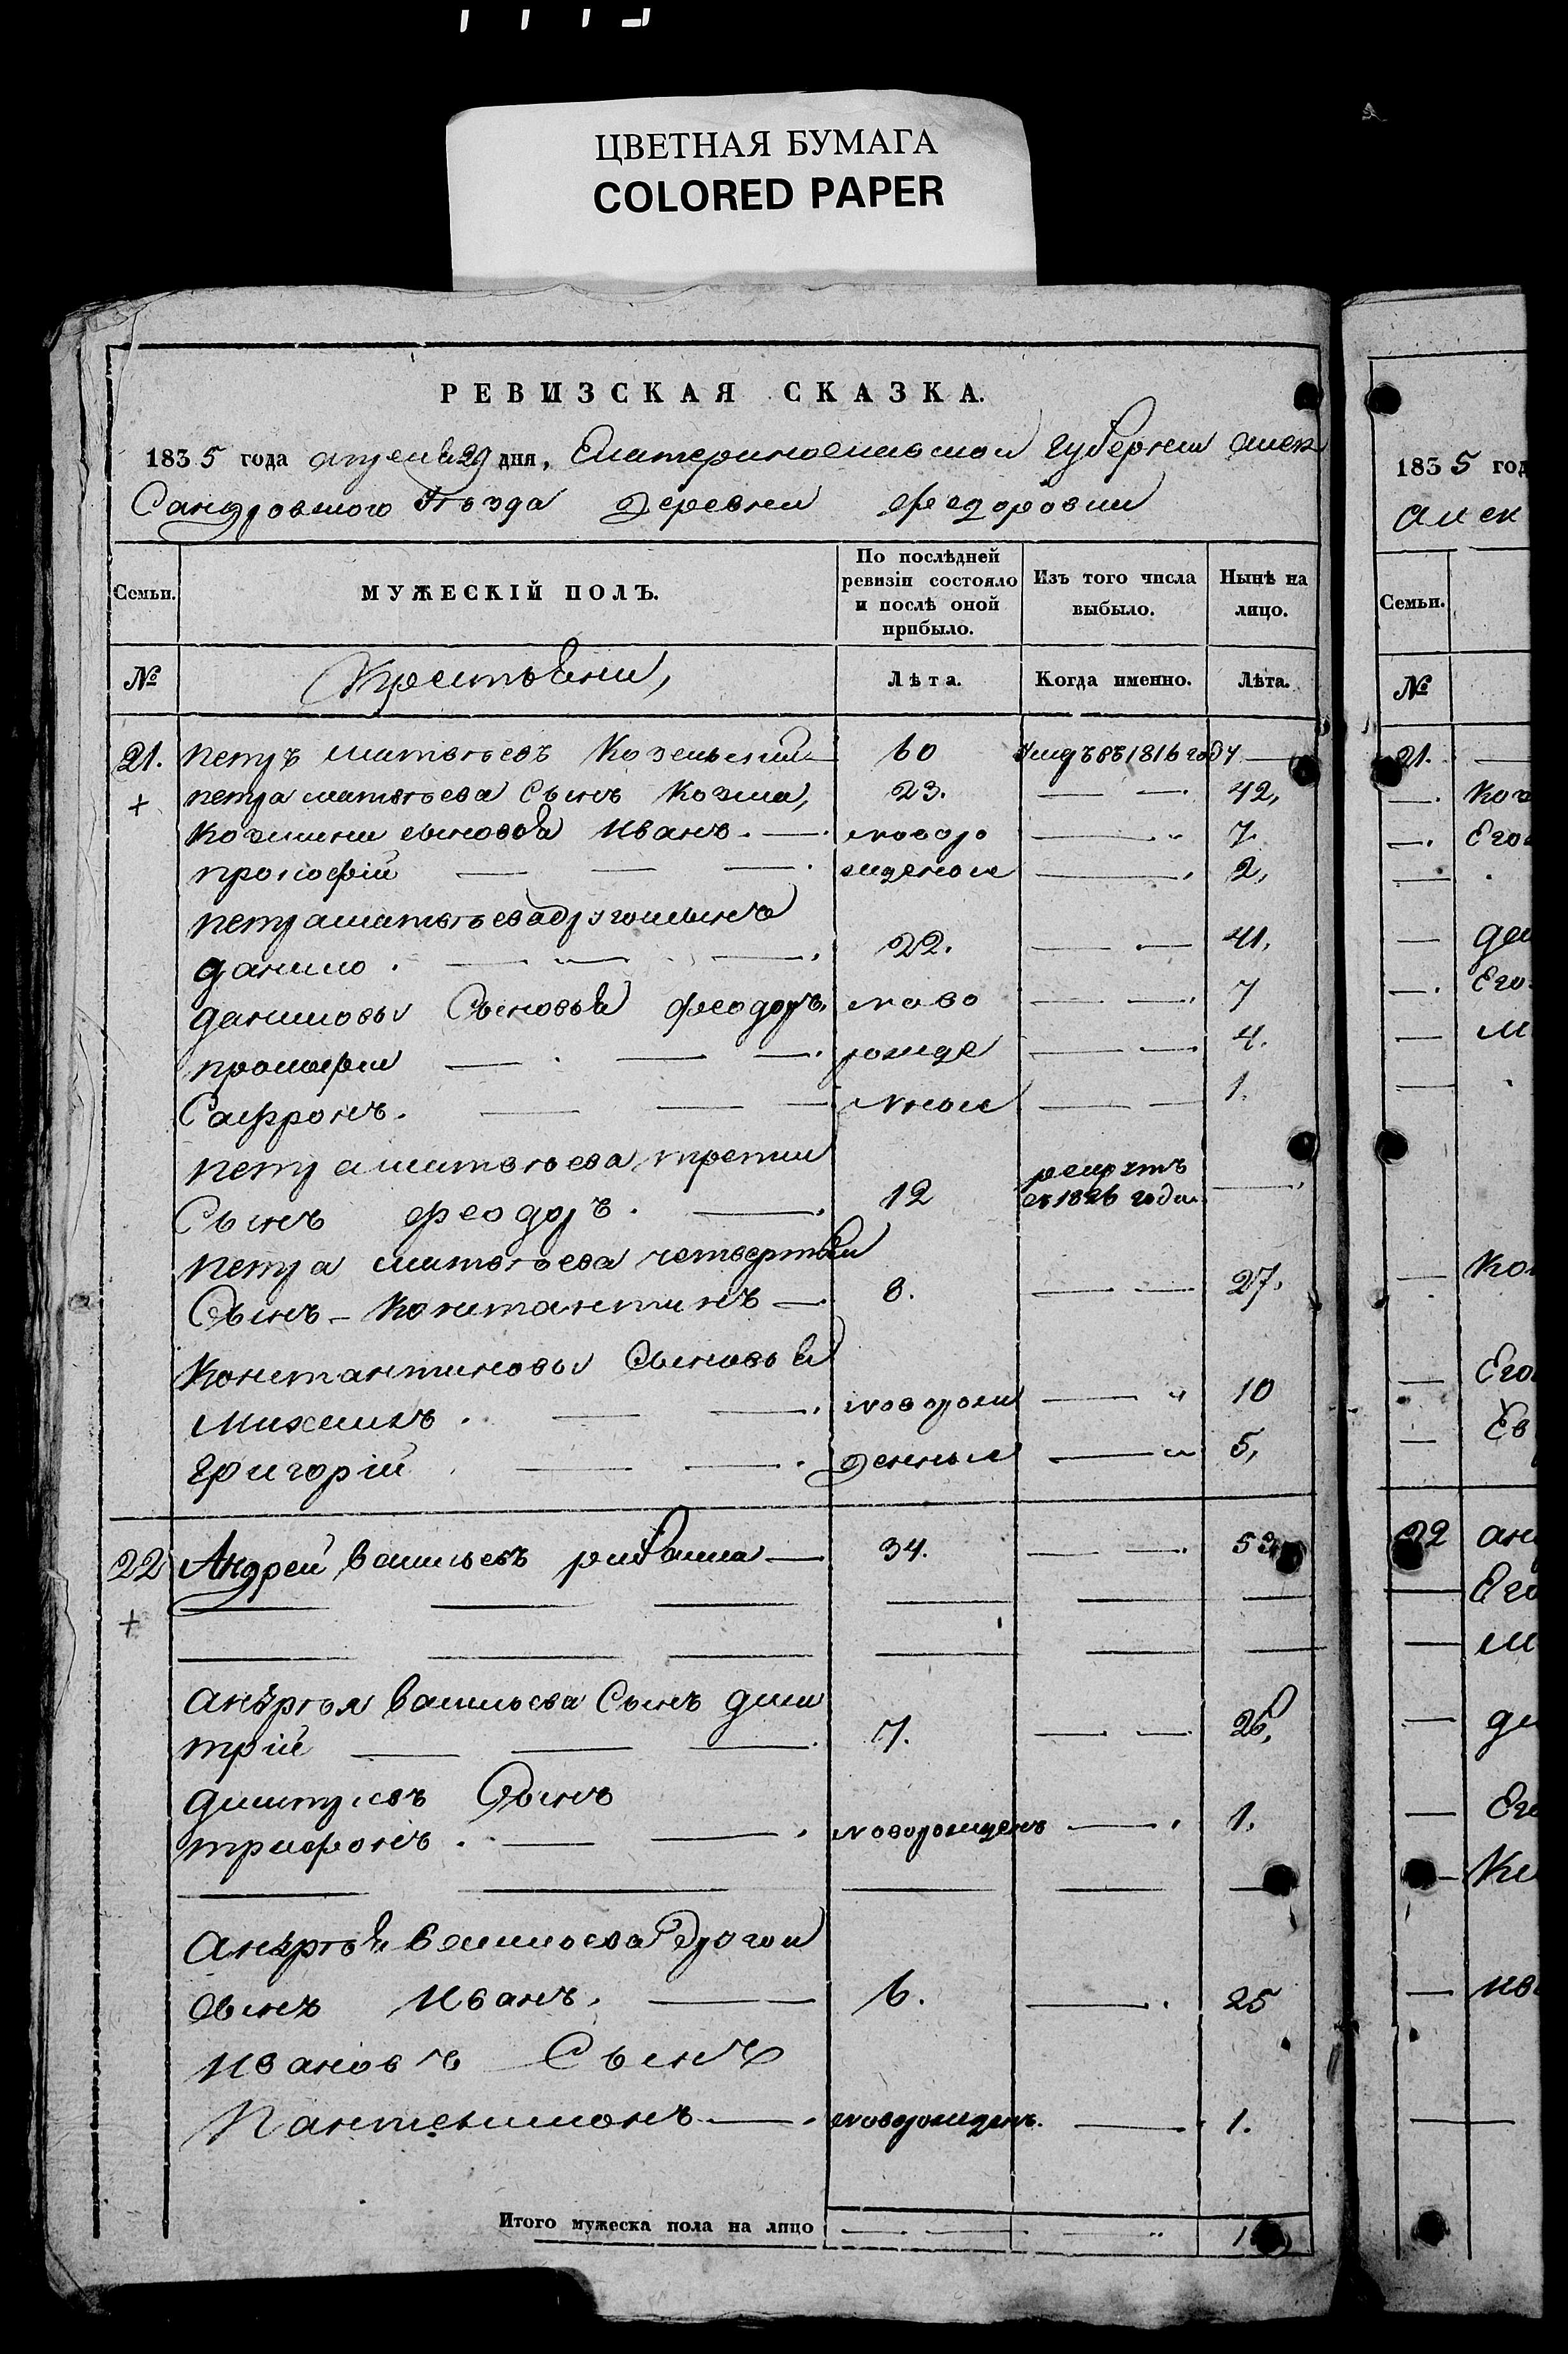 ЦВЕТНАЯ БУМАГА
COLORED PAPER
РЕВИЗСКАЯ СКАЗКА.
1835 года апреля 29 дня, Екатеринославской губернии Алек
Сандровского уѣзда деревни федоровки
Семьи. МУЖЕСКІЙ ПОЛЪ. По послѣдней ревизіи состояло и послѣ оной прибыло. Изъ того числа выбыло. Нынѣ на лицо.
№ Крестьяни, Лѣта. Когда именно. Лѣта.
21. петръ матвѣевъ 60 умеръ въ 1816 году —
+ петра матвѣева Сынъ козма, 23. — — 42,
козмини сыновья иванъ. — новоро — 7.
прокофій — — — жденои — 2,
петра матвѣева другои сынъ
данило. — — — 22. — — 41,
даниловы Сыновья феодоръ, ново — — 7
прокофи — — — рожде — — 4.
Сафронъ. — — — нои — — 1.
петра матвѣева трети
Сынъ феодоръ. — 12 рекрутъ въ 1826 года —
петра матвѣева четвертои
Сынъ — констант инъ — 8. — — 27.
Константиновы Сыновья
михаилъ. — — новорож — 10
григорій — — денныи — 5,
22 Андреи васильевъ — 34. — — 53
+
андрѣя васильева Сынъ дми
трій — — — 7. — — 26,
дмитріевъ Сынъ
трифонъ. — — новорожденъ — 1.
андрѣя васильева другои
сынъ иванъ, — 6. — 25
ивановъ Сынъ
Пантелимонъ — новорожденъ. — 1.
Итого мужеска пола на лицо — — — 1
1835 год
алек
Семьи.
№
21. —
— коз
— Его
—
— да
— Его
— м
—
— кон
— Его
— Ев
22 анд
— Его
— м
— ди
— Его
— ив